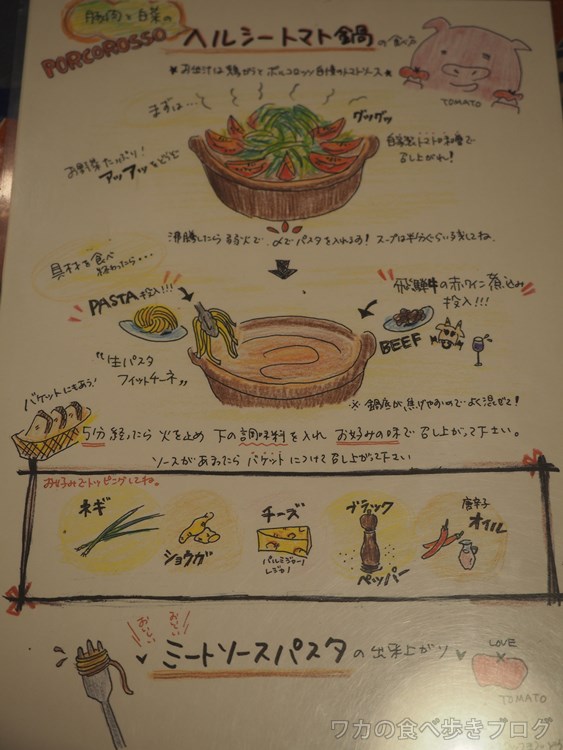 豚肉と白菜の
PORCOROSSO
ヘルシートマト鍋の食べ方
★お出汁は鶏がらとポルコロッソ自慢のトマトソース★
TOMATO
まずは…
グツグツ
お野菜たっぷり!
アツアツをどうぞ
自家製トマトの味噌で
召し上がれ!
沸騰したら弱火で、〆でパスタを入れるゾ! スープは半分ぐらい残してね。
具材を食べ
終わったら…
PASTA投入!!!
飛騨牛の赤ワイン煮込み
投入!!!
BEEF
"生パスタ
フィットチーネ"
バゲットにもあう!
※鍋底が焦げやすいのでよく混ぜて!
5分経ったら火を止め下の調味料を入れお好みの味で召し上がって下さい。
ソースがあまったらバゲットにつけて召し上がって下さい
お好みでトッピングしてね。
ネギ
ショウガ
チーズ
パルミジャーノ
レジャーノ
ブラック
ペッパー
唐辛子
オイル
おいしい
おいしい
ミートソースパスタの出来上がり♥
LOVE
×
TOMATO
ワカの食べ歩きブログ